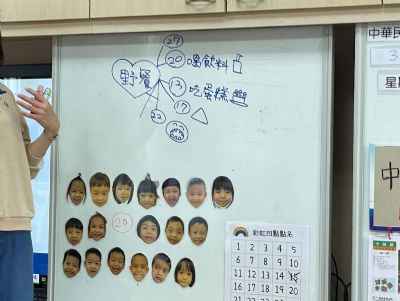 27
20 喝飲料
野餐
13 吃蛋糕
17
22
20
彩虹四點點名
1 2 3 4 5
6 7 8 9 10
11 12 13 14 15
16 17 18 19 20
中華民
3
星期
中